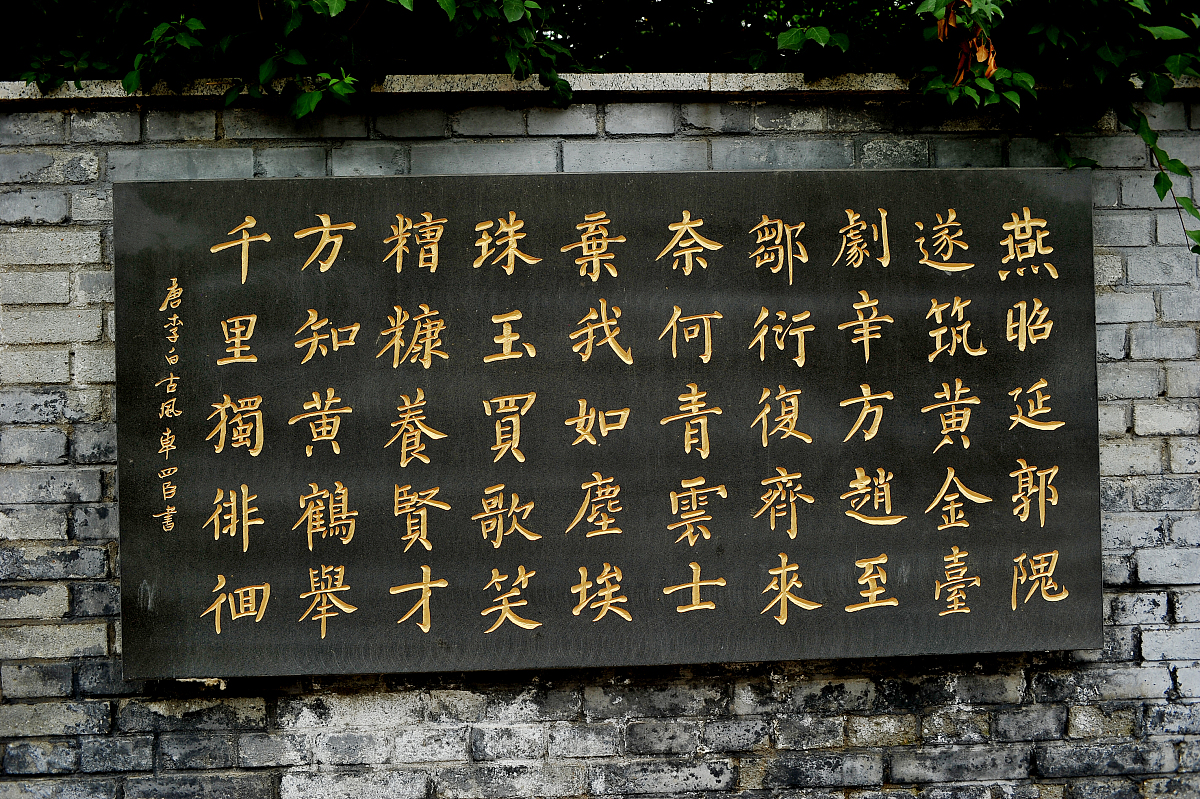 燕昭延郭隗
遂筑黄金臺
劇辛方趙至
鄒衍復齊來
奈何青雲士
棄我如塵埃
珠玉買歌笑
糟糠養賢才
方知黄鶴舉
千里獨徘徊
唐李白古風 車四臣書